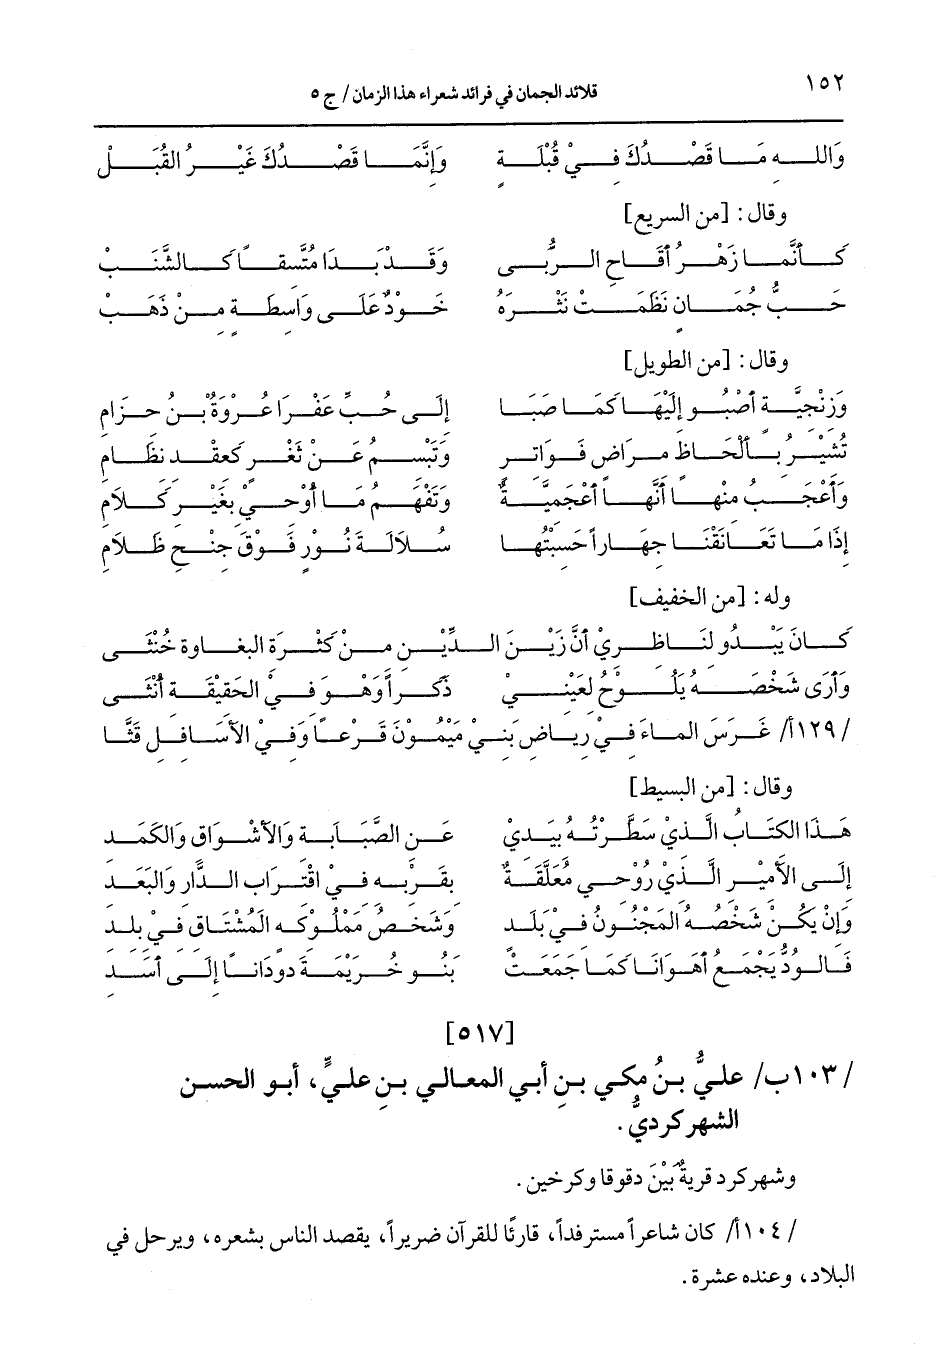 ١٥٢ قلائد الجمان في فرائد شعراء هذا الزمان / ج ٥
وَاللهِ مَا قَصْدُكَ فِيْ قُبْلَةٍ وَإِنَّمَا قَصْدُكَ غَيْرُ القُبَلْ
وقال: [من السريع]
كَأَنَّمَا زَهْرُ أقَاحِ الرُّبى وَقَدْ بَدَا مُتَّسِقاً كَالشَّنَبْ
حَبُّ جُمَانٍ نَظَمَتْ نَثْرَهُ خَوْدٌ عَلَى وَاسِطَةٍ مِنْ ذَهَبْ
وقال: [من الطويل]
وَزِنْجِيَّةٍ أصْبُو إِلَيْهَا كَمَا صَبَا إِلَى حُبِّ عَفْرَا عُرْوَةُ بْنُ حِزَامِ
تُشِيْرُ بِأَلْحَاظٍ مِرَاضٍ فَوَاتِرٍ وَتَبْسِمُ عَنْ ثَغْرٍ كَعِقْدِ نِظَامِ
وَأَعْجَبُ مِنْهَا أَنَّهَا أعْجَمِيَّةٌ وَتَفْهَمُ مَا أُوْحِي بِغَيْرِ كَلَامِ
إِذَا مَا تَعَانَقْنَا جِهَاراً حَسِبْتُهَا سُلَالَةَ نُوْرٍ فَوْقَ جِنْحِ ظَلَامِ
وله: [من الخفيف]
كَانَ يَبْدُو لِنَاظِرِيْ أنَّ زَيْنَ الدِّيْنِ مِنْ كَثْرَةِ البغاوة خُنْثَى
وَأرَى شَخْصَهُ يَلُوْحُ لِعَيْنِيْ ذَكَراً وَهْوَ فِيْ الحَقِيْقَةِ أُنْثَى
/١٢٩أ/ غَرَسَ الماءَ فِيْ رِيَاضِ بَنِيْ مَيْمُوْنَ قَرْعاً وَفِيْ الأَسَافِلِ قَثَّا
وقال: [من البسيط]
هَذَا الكِتَابُ الَّذِيْ سَطَّرْتُهُ بِيَدِيْ عَنِ الصَّبَابَةِ وَالأَشْوَاقِ وَالكَمَدِ
إِلَى الأَمِيْرِ الَّذِيْ رُوْحِي مُعَلَّقَةٌ بِقُرْبِهِ فِيْ اقْتِرَابِ الدَّارِ وَالبَعَدِ
وَإِنْ يَكُنْ شَخْصُهُ المَجْنُونُ فِيْ بَلَدٍ وَشَخْصُ مَمْلُوْكِهِ المُشْتَاقِ فِيْ بلدِ
فَالوُدُّ يَجْمَعُ أهْوَانَا كَمَا جَمَعَتْ بَنُو خُزَيْمَةَ دودَاناً إِلَى أَسَدِ
[٥١٧]
/١٠٣ب/ عليُّ بنُ مكي بنِ أبي المعالي بنِ عليٍّ، أبو الحسن
الشهركرديُّ.
وشهركرد قريةٌ بَيْنَ دقوقا وكرخين.
/١٠٤أ/ كان شاعراً مسترفداً، قارئًا للقرآن ضريراً، يقصد الناس بشعره، ويرحل في
البلاد، وعنده عشرة.